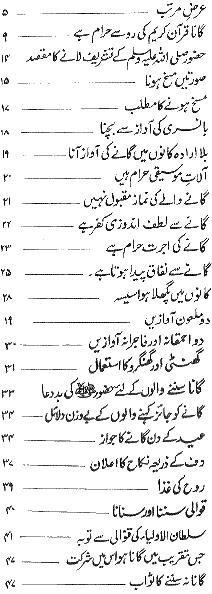 عرض مرتب ۵
گانا قرآن کریم کی رو سے حرام ہے ۹
حضور صلی اللہ علیہ وسلم کے تشریف لانے کا مقصد ۱۴
صورتیں مسخ ہونا ۱۵
مسخ ہونے کا مطلب ۱۷
بانسری کی آواز سے بچنا ۱۸
بلا ارادہ کانوں میں گانے کی آواز آنا ۱۹
آلات موسیقی حرام ہیں ۲۰
گانے والے کی نماز مقبول نہیں ۲۱
گانے سے لطف اندوزی کفر ہے ۲۲
گانے کی اجرت حرام ہے ۲۳
گانے سے نفاق پیدا ہوتا ہے۔ ۲۵
کانوں میں پگھلا ہوا سیسہ ۲۸
دو ملعون آوازیں ۱۹
دو احمقانہ اور فاجرانہ آوازیں ۳۰
گھنٹی اور گھنگرو کا استعمال ۳۱
گانا سننے والوں کے لئے حضور ﷺ کی بددعا ۳۳
گانے کو جائز کہنے والوں کے بے وزن دلائل ۳۴
عید کے دن گانے کا جواز ۳۴
دف کے ذریعہ نکاح کا اعلان ۳۷
روح کی غذا ۳۹
قوالی سننا اور سنانا ۴۰
سلطان الاولیاء کی قوالی سے توبہ ۴۱
جس تقریب میں گانا ہو اس میں شرکت ۴۷
گانا نہ سننے کا ثواب ۴۷